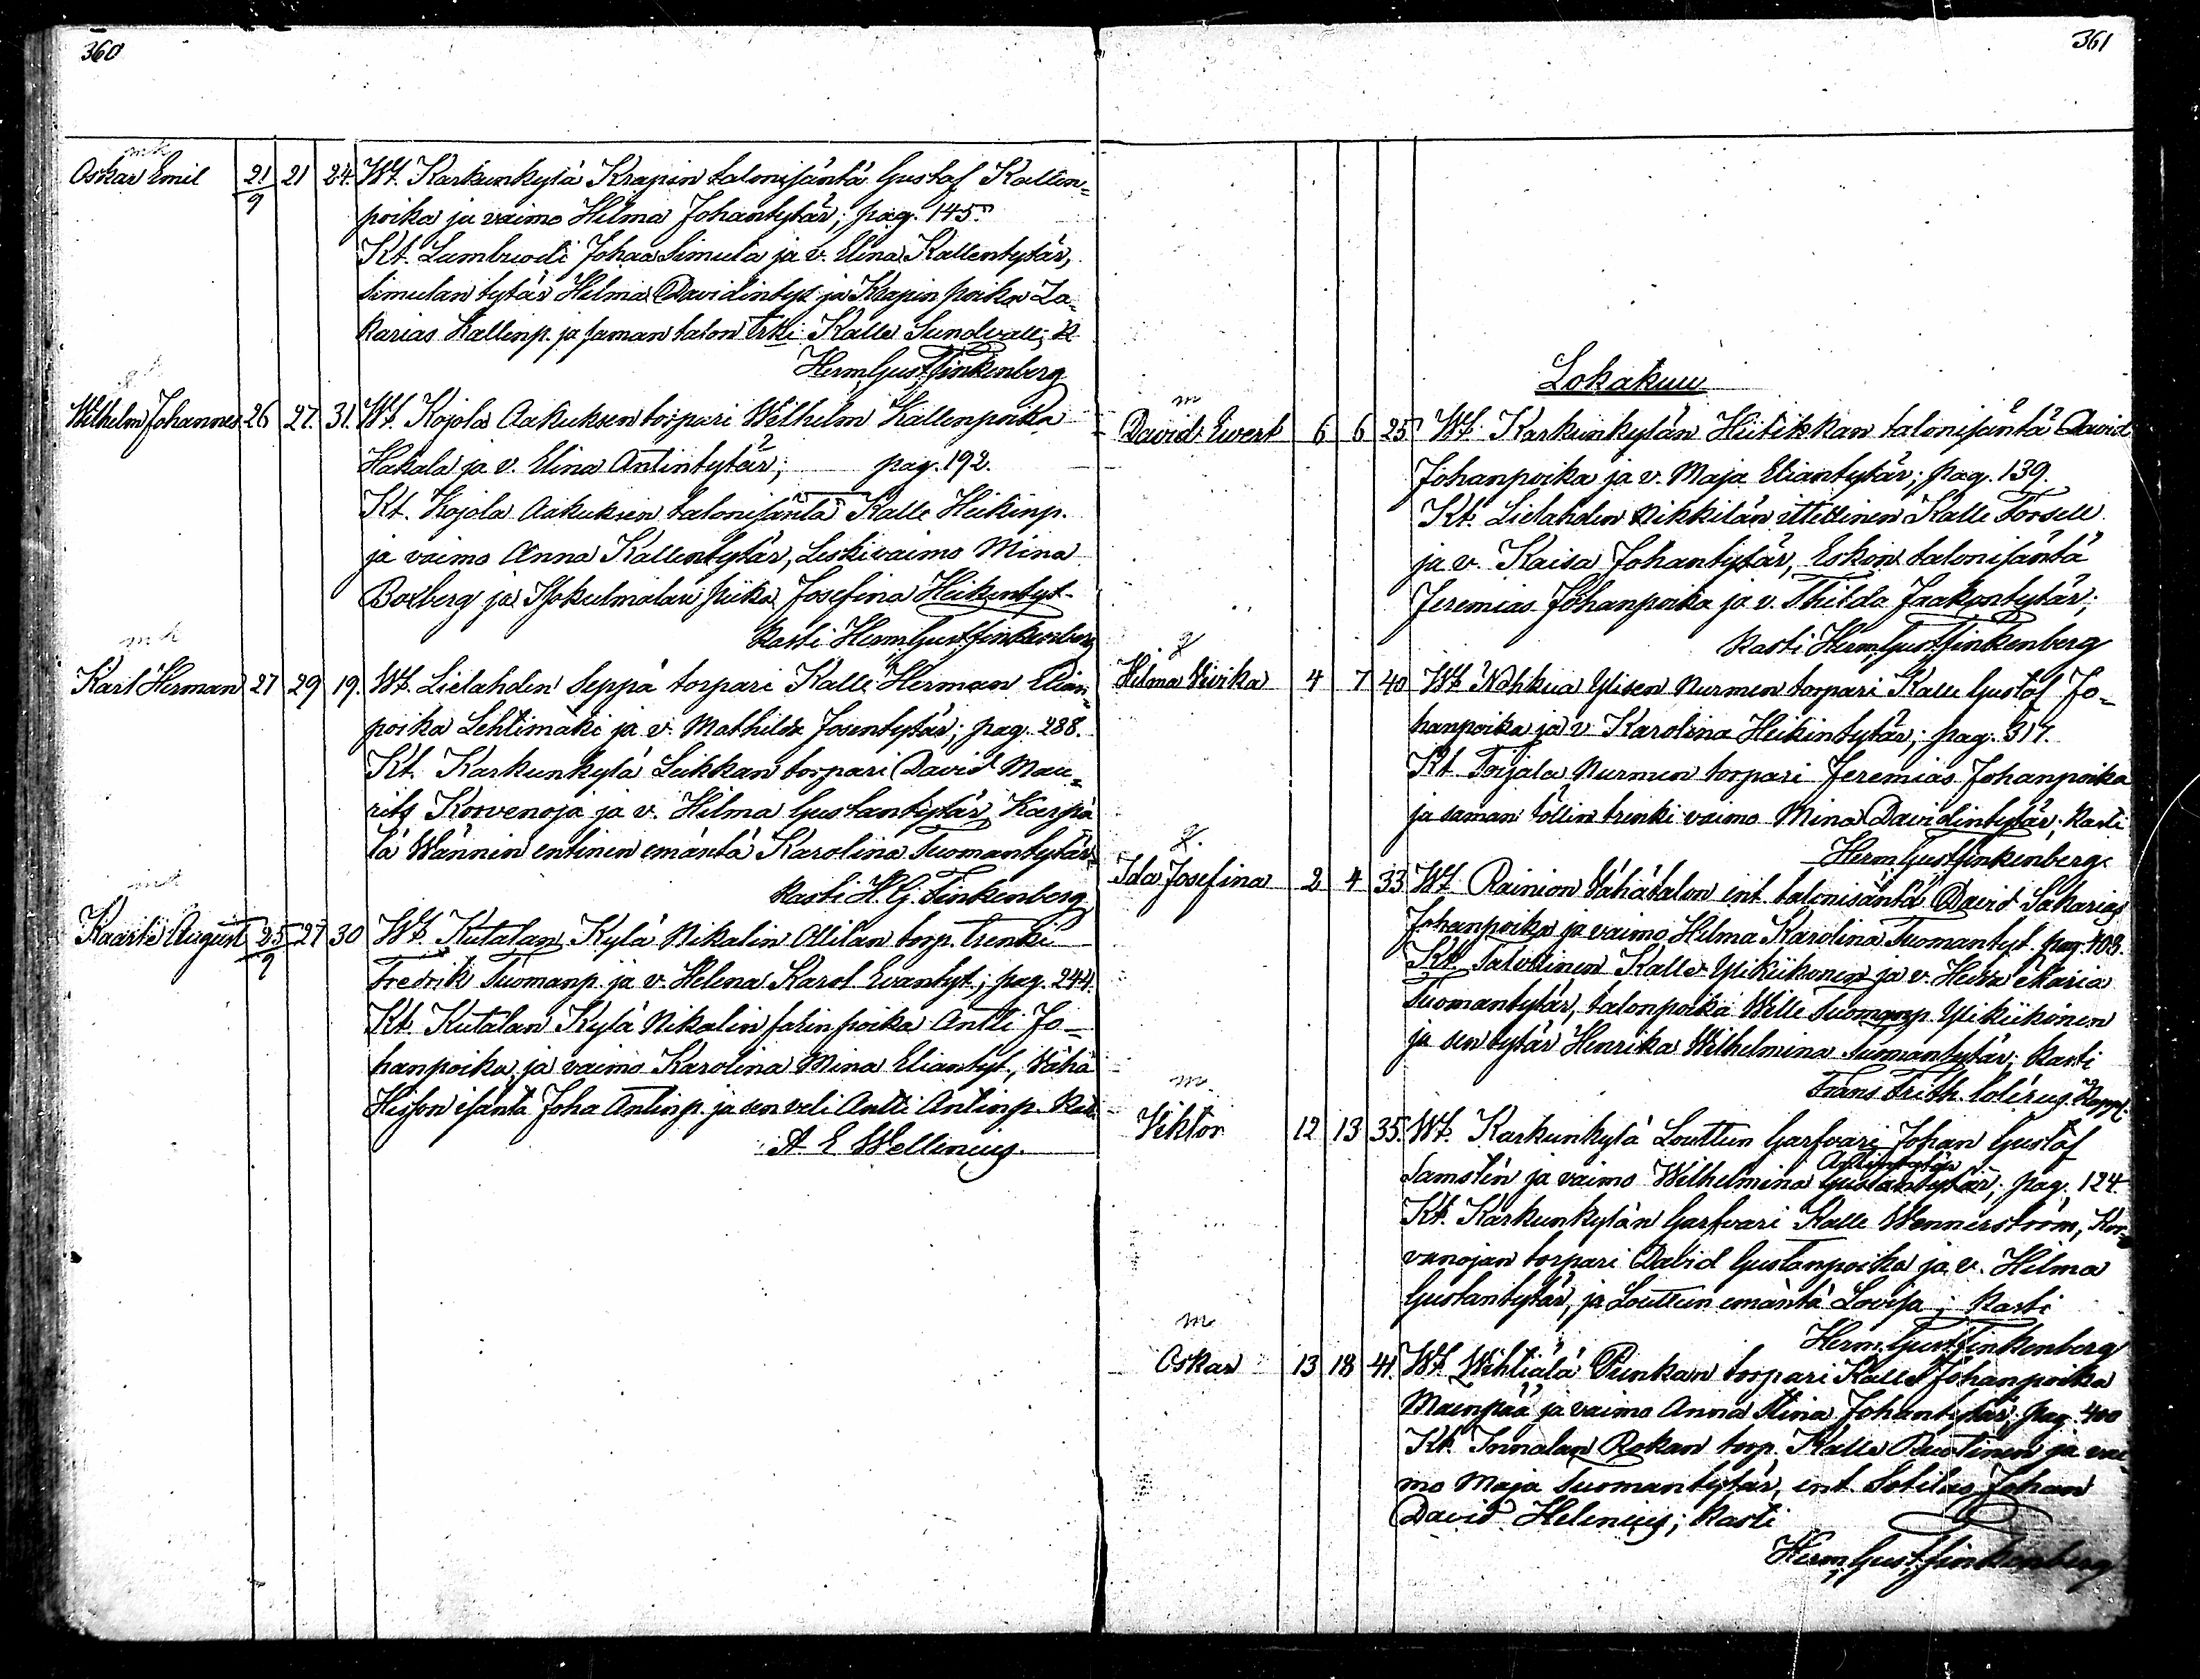 360
mk
Oskar Emil 21/9 21 24. Wt. Karkunkylä Krapin talonisäntä Gustaf Kallen-
poika ja vaimo Hilma Johantytär; pag. 145.
Kt. Juha Simula ja v. Elina Kallentytär,
Simulan tytär Hilma Davidintyt. ja Krapin poika Za-
karias Kallenp. ja saman talon trki Kalle Sundvall; K.
Herm Gust Finkenberg
Wilhelm Johannes 26 27. 31. Wt. Kojola Aakuksen torpari Wilhelm Kallenpoika
Hakala ja v. Elina Antintytär; pag. 192.
Kt. Kojola Aakuksen talonisäntä Kalle Heikinp.
ja vaimo Anna Kallentytär, Leskivaimo Mina
Boxberg ja piika Josefina Heikintyt.
Kasti Herm Gust Finkenberg
mk
Karl Herman 27 29 19. Wt. Lielahden Seppä torpari Kalle Herman Elian-
poika Lehtimäki ja v. Mathilda Josentytär; pag. 288.
Kt. Karkunkylä Liukkan torpari David Mau-
rits Korvenoja ja v. Hilma Gustantytär, Karpä
lä Wännin entinen emäntä Karolina Tuomantytär;
Kasti H. G. Finkenberg
mk
Kaarle August 25/9 27 30 Wt. Kutalan Kylä Nikalin Ollilan torp. trenki
Fredrik Tuomanp. ja v. Helena Karol. Evantyt.; pag. 244.
Kt. Kutalan Kylä Nikalin poika Antti Jo-
hanpoika ja vaimo Karolina Mina Eliantyt., Vähä
Hisson isäntä Joha Antinp. ja sen veli Antti Antinp. Kast.
A E Wellenius.
361
Lokakuu
m
David Evert 6 6 25 Wt. Karkunkylän Hiitikkan talonisäntä David
Johanpoika ja v. Maja Eliantytär; pag. 139.
Kt. Lielahden Nikkilän ittellinen Kalle Forsell
ja v. Kaisa Johantytär, Eskon talonisäntä
Jeremias Johanpoika ja v. Thilda Jaakontytär;
Kasti Herm Gust Finkenberg
q
Hilma Viivika 4 7 40 Wt. Nohkua Ylisen Nurmen torpari Kalle Gustaf Jo-
hanpoika ja v. Karolina Heikintytär; pag. 317.
Kt. Toijala Nurmen torpari Jeremias Johanpoika
ja saman töllin trenki vaimo Mina Davidintytär; Kasti
Herm Gust Finkenberg
q.
Ida Josefina 2 4 33 Wt. Rainion Vähätalon ent. talonisäntä David Sakarias
Johanpoika ja vaimo Hilma Karolina Tuomantyt. pag. 408.
Kt. Talollinen Kalle Ylikiikonen ja v. Hedda Maria
Tuomantytär, talonpoika Wille Tuomanp. Ylikiikonen
ja sen tytär Henrika Wilhelmina Tuomantytär; Kasti
Frans Frith. Kappl.
m
Viktor 12 13 35. Wt. Karkunkylä Louttun Garfvari Johan Gustaf
Samstén ja vaimo Wilhelmina Antintytär Gustantytär; pag. 124.
Kt. Karkunkylän Garfvari Kalle Wennerström, Kor-
venojan torpari David Gustanpoika ja v. Hilma
Gustantytär, ja Louttun emäntä Lovisa; Kasti
Herm. Gust. Finkenberg
m
Oskar 13 18 41. Wt. Wihtiälä Punkan torpari Kalle Johanpoika
Mäenpää ja vaimo Anna Stina Johantytär; pag. 400
Kt. Innalan Rokan torp. Kalle Ruotinen ja vai-
mo Maja Tuomantytär, ent. Sotilas Johan
David Helenius; Kasti
Herm. Gust. Finkenberg